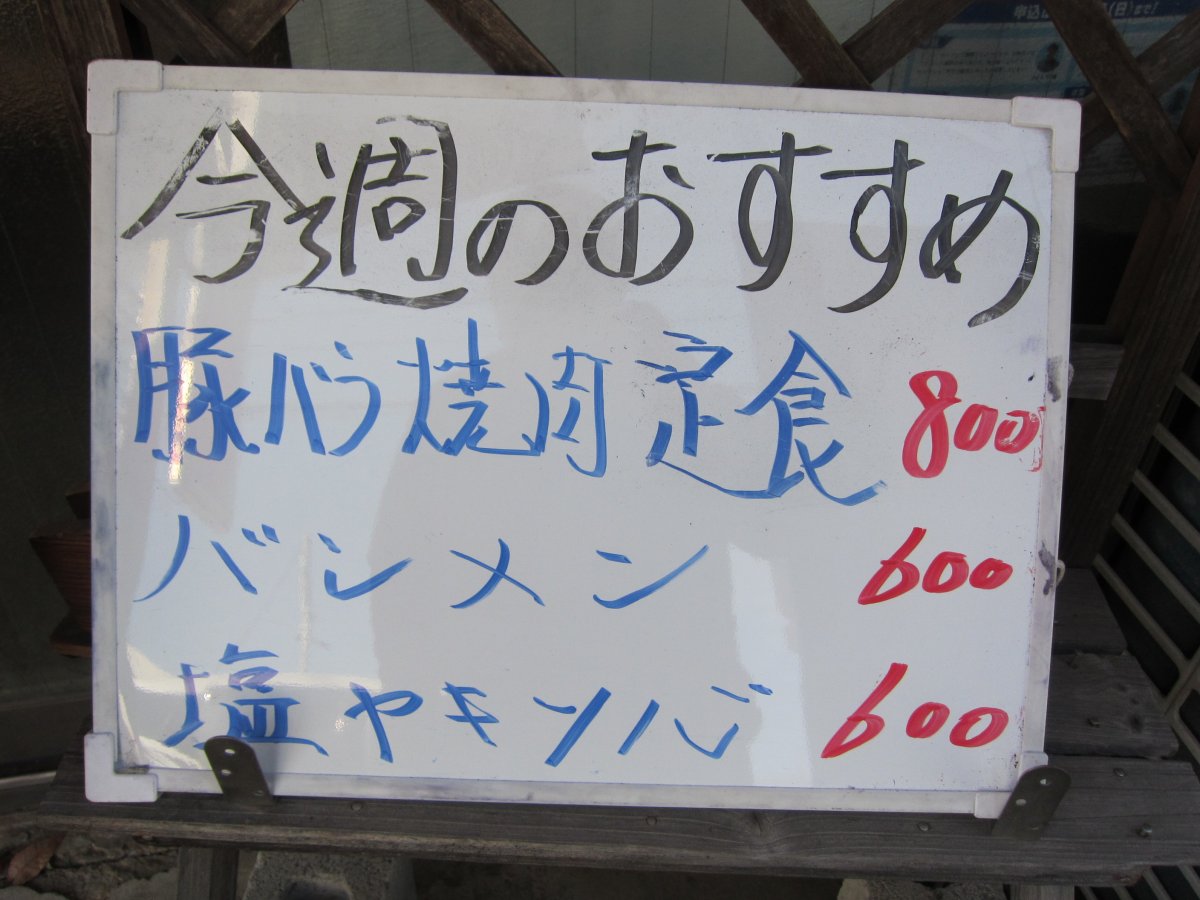 今週のおすすめ
豚バラ焼肉定食 800
バシメン 600
塩ヤキソバ 600